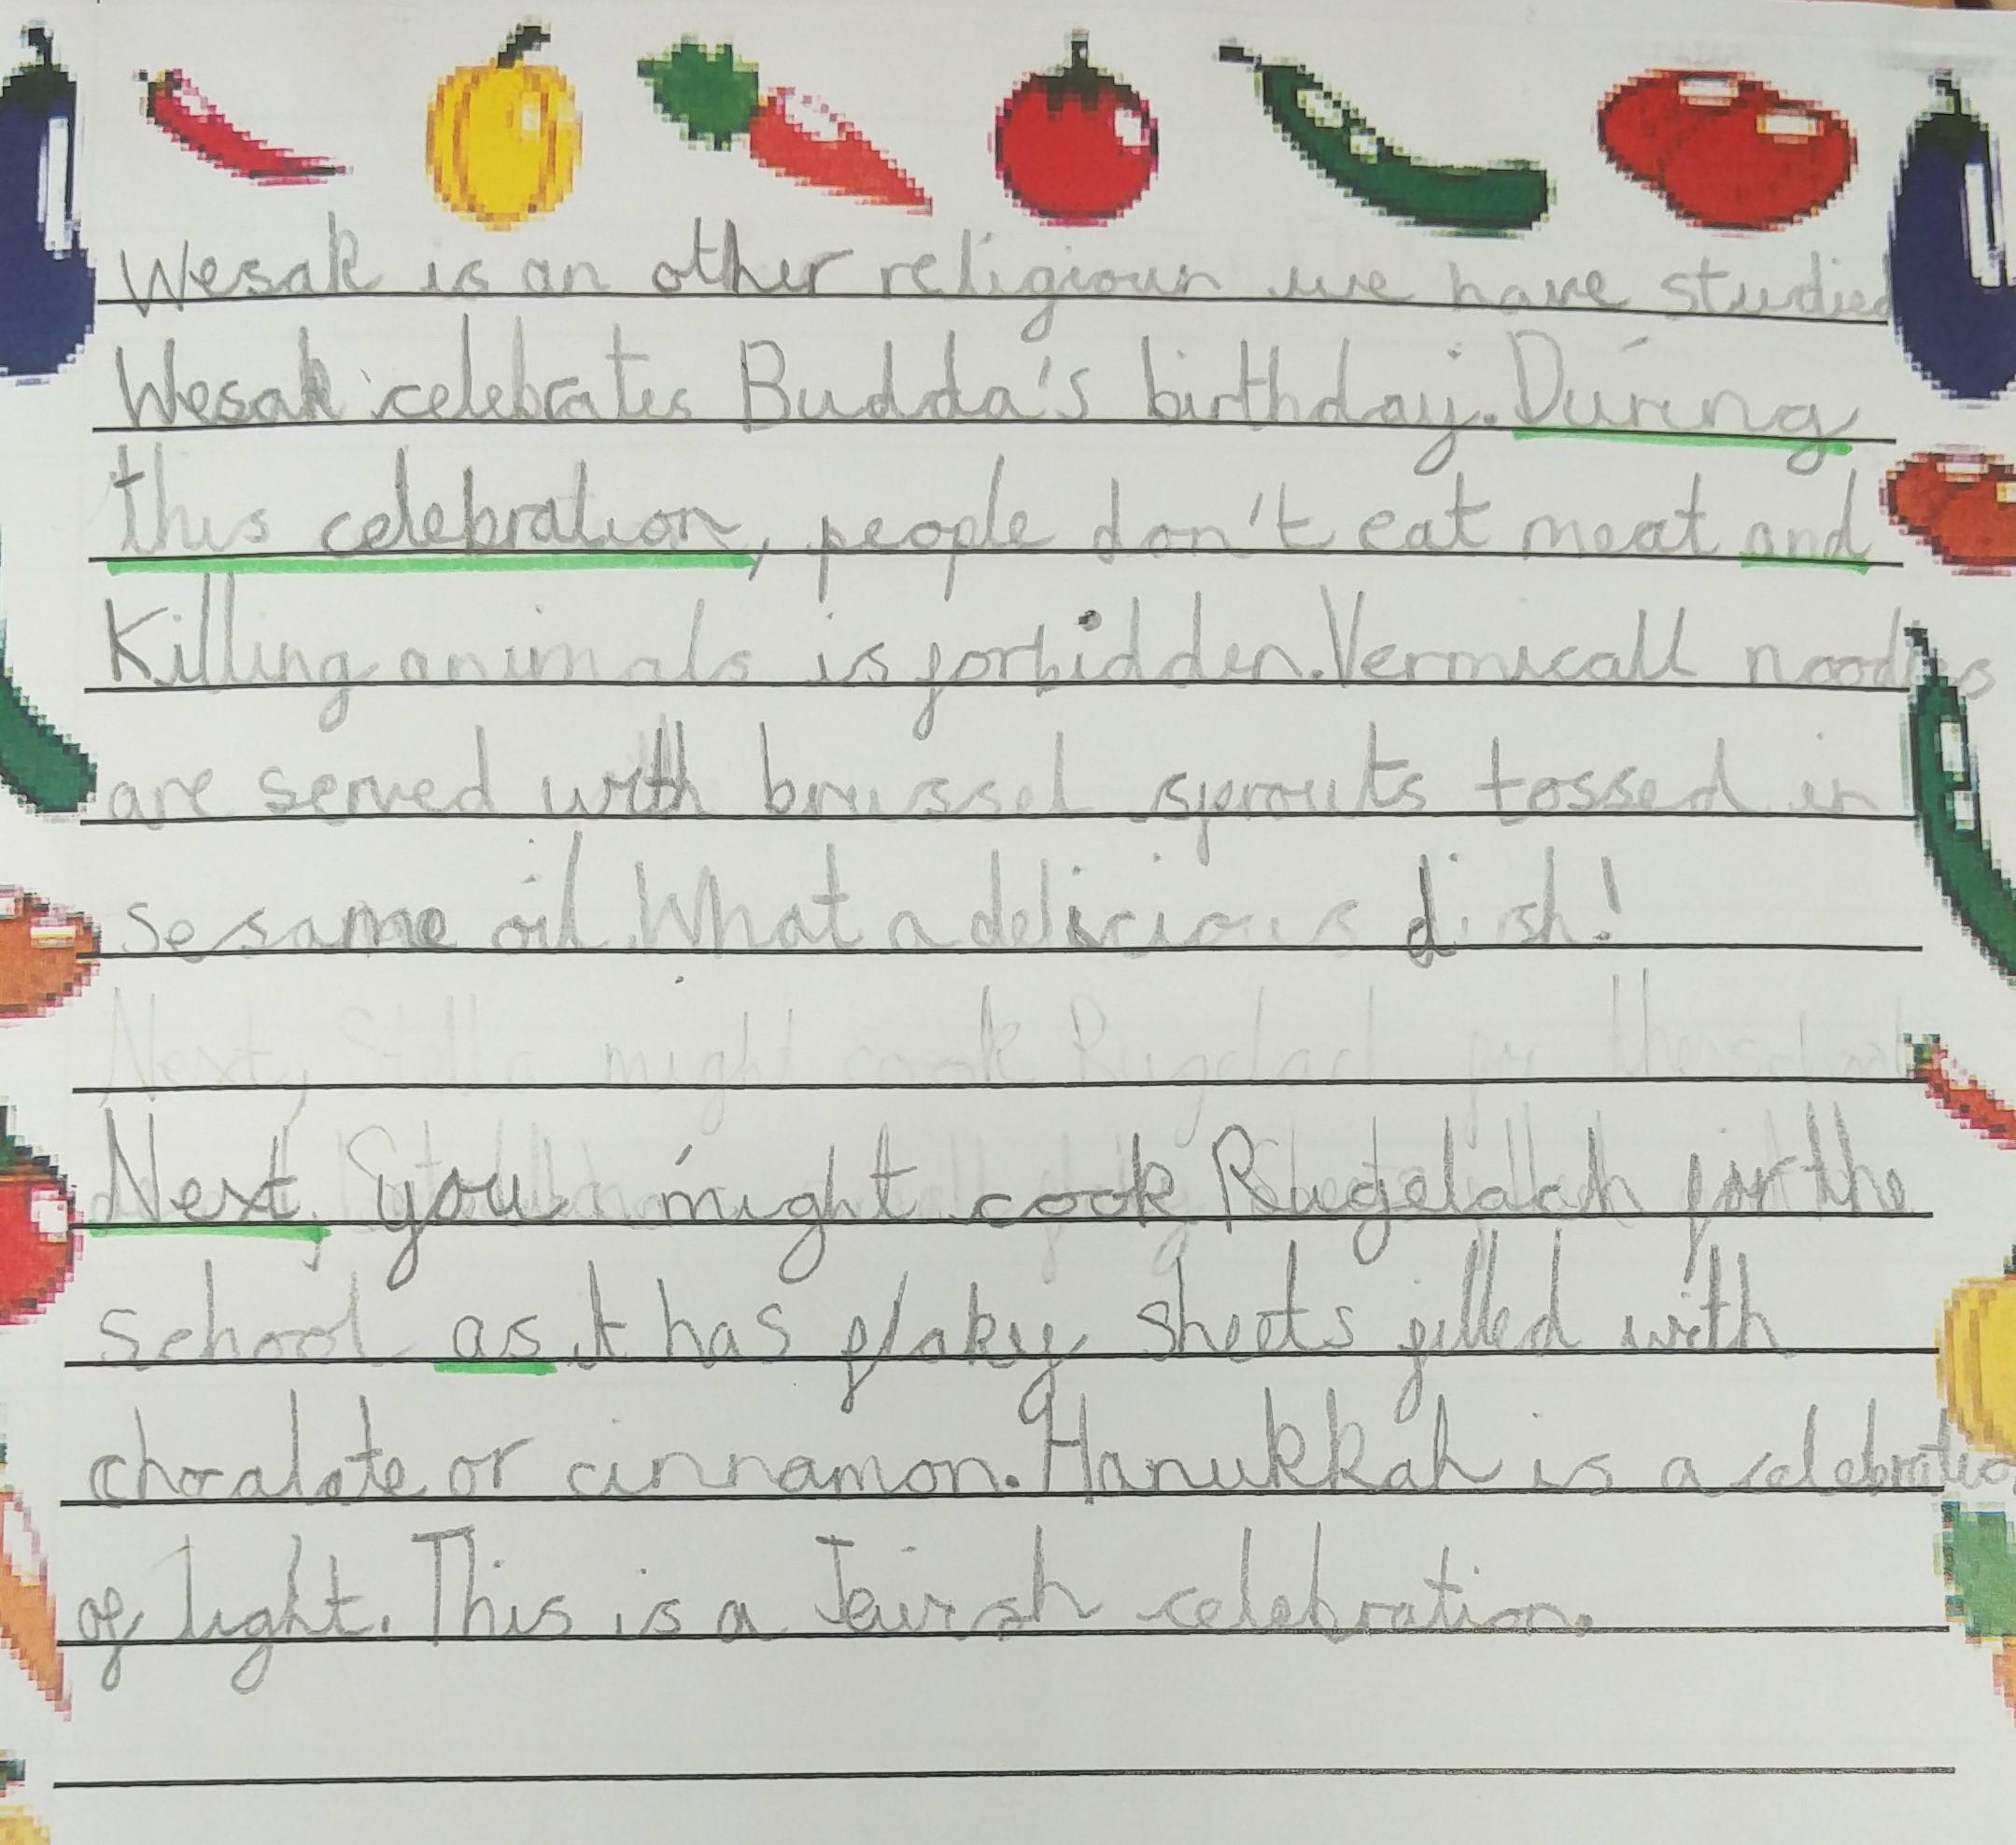 Wesak is an other religioun we have studied
Wesak celebrates Budda's birthday. During
this celebration, people don't eat meat and
Killing animals is forbidden. Vermicall noodles
are served with brussel sprouts tossed in
sesame oil. What a delicious dish!
Next, Stella might cook Rugelach for the school
Next, you might cook Rugelach for the
school as it has flaky sheets filled with
chocalate or cinnamon. Hanukkah is a celebration
of light. This is a Jewish celebration.